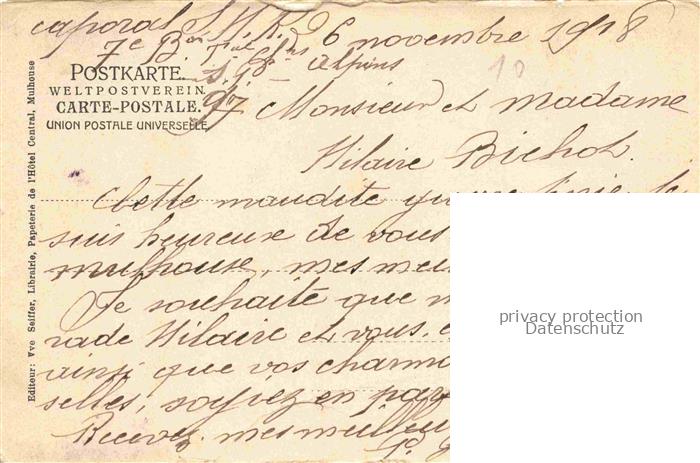 caporal S.M.R.
7e Bon Tial Chrs 6 novembre 1918
s.p. 8 - Alpins
97
10
POSTKARTE.
WELTPOSTVEREIN.
CARTE-POSTALE.
UNION POSTALE UNIVERSELLE.
Editeur: Vve Seiffer, Librairie, Papeterie de l'Hôtel Central, Mulhouse
Monsieur et madame
Hilaire Bichot.
Cette maudite guerre finie, Je
suis heureux de vous
mulhouse, mes meil
Je souhaite que
rade Hilaire et vous,
ainsi que vos charm
selles, soyiez en par
Recevez mes meilleu
privacy protection
Datenschutz